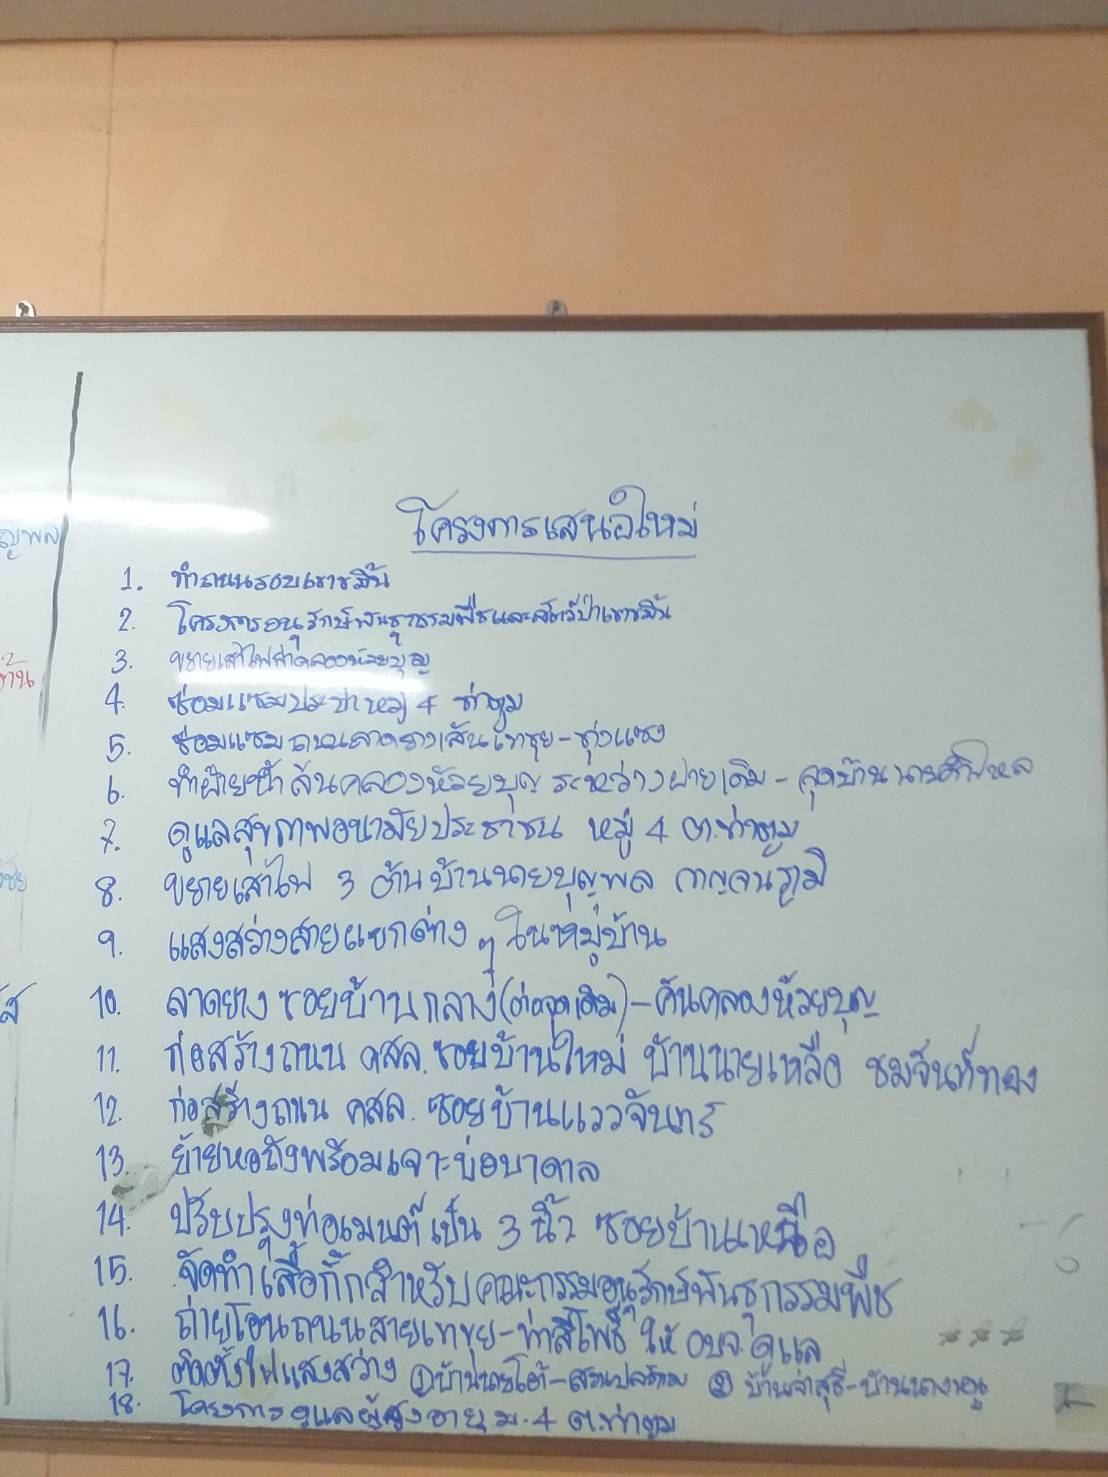 โครงการเสนอใหม่
1. ทำถนนรอบเขาขมิ้น
2. โครงการอนุรักษ์พันธุกรรมพืชและสัตว์ป่าเขาขมิ้น
3. ขยายเสาไฟฟ้าคลองห้วยบุญ
4. ซ่อมแซมประปาหมู่ 4 ท่าตูม
5. ซ่อมแซมถนนลาดยางเส้น -ทุ่งแซง
6. ทำฝายน้ำล้นคลองห้วยบุญ ระหว่างฝายเดิม-สุดบ้าน
7. ดูแลสุขภาพอนามัยประชาชน หมู่ 4 ต.ท่าตูม
8. ขยายเสาไฟ 3 ต้นบ้านนายบุญพล กาญจนภูมิ
9. แสงสว่างสายแยกต่าง ๆ ในหมู่บ้าน
10. ลาดยางซอยบ้านกลาง(ต่อจุดเดิม)-คันคลองห้วยบุญ
11. ก่อสร้างถนน คสล. ซอยบ้านใหม่ บ้านนายเหลือ ชมจันทร์ทอง
12. ก่อสร้างถนน คสล. ซอยบ้านแววจันทร์
13. ย้ายหอถังพร้อมเจาะบ่อบาดาล
14. ปรับปรุงท่อเมนต์เป็น 3 นิ้ว ซอยบ้านเหนือ
15. จัดทำเสื้อกั๊กสำหรับคณะกรรมอนุรักษ์พันธุกรรมพืช
16. ถ่ายโอนถนนสาย -ท่าสีโพธิ์ ให้ อบจ.ดูแล
17. ติดตั้งไฟแสงสว่าง ① บ้านนายโต้- ② บ้าน -บ้านนางหนู
18. โครงการดูแลผู้สูงอายุ ม.4 ต.ท่าตูม